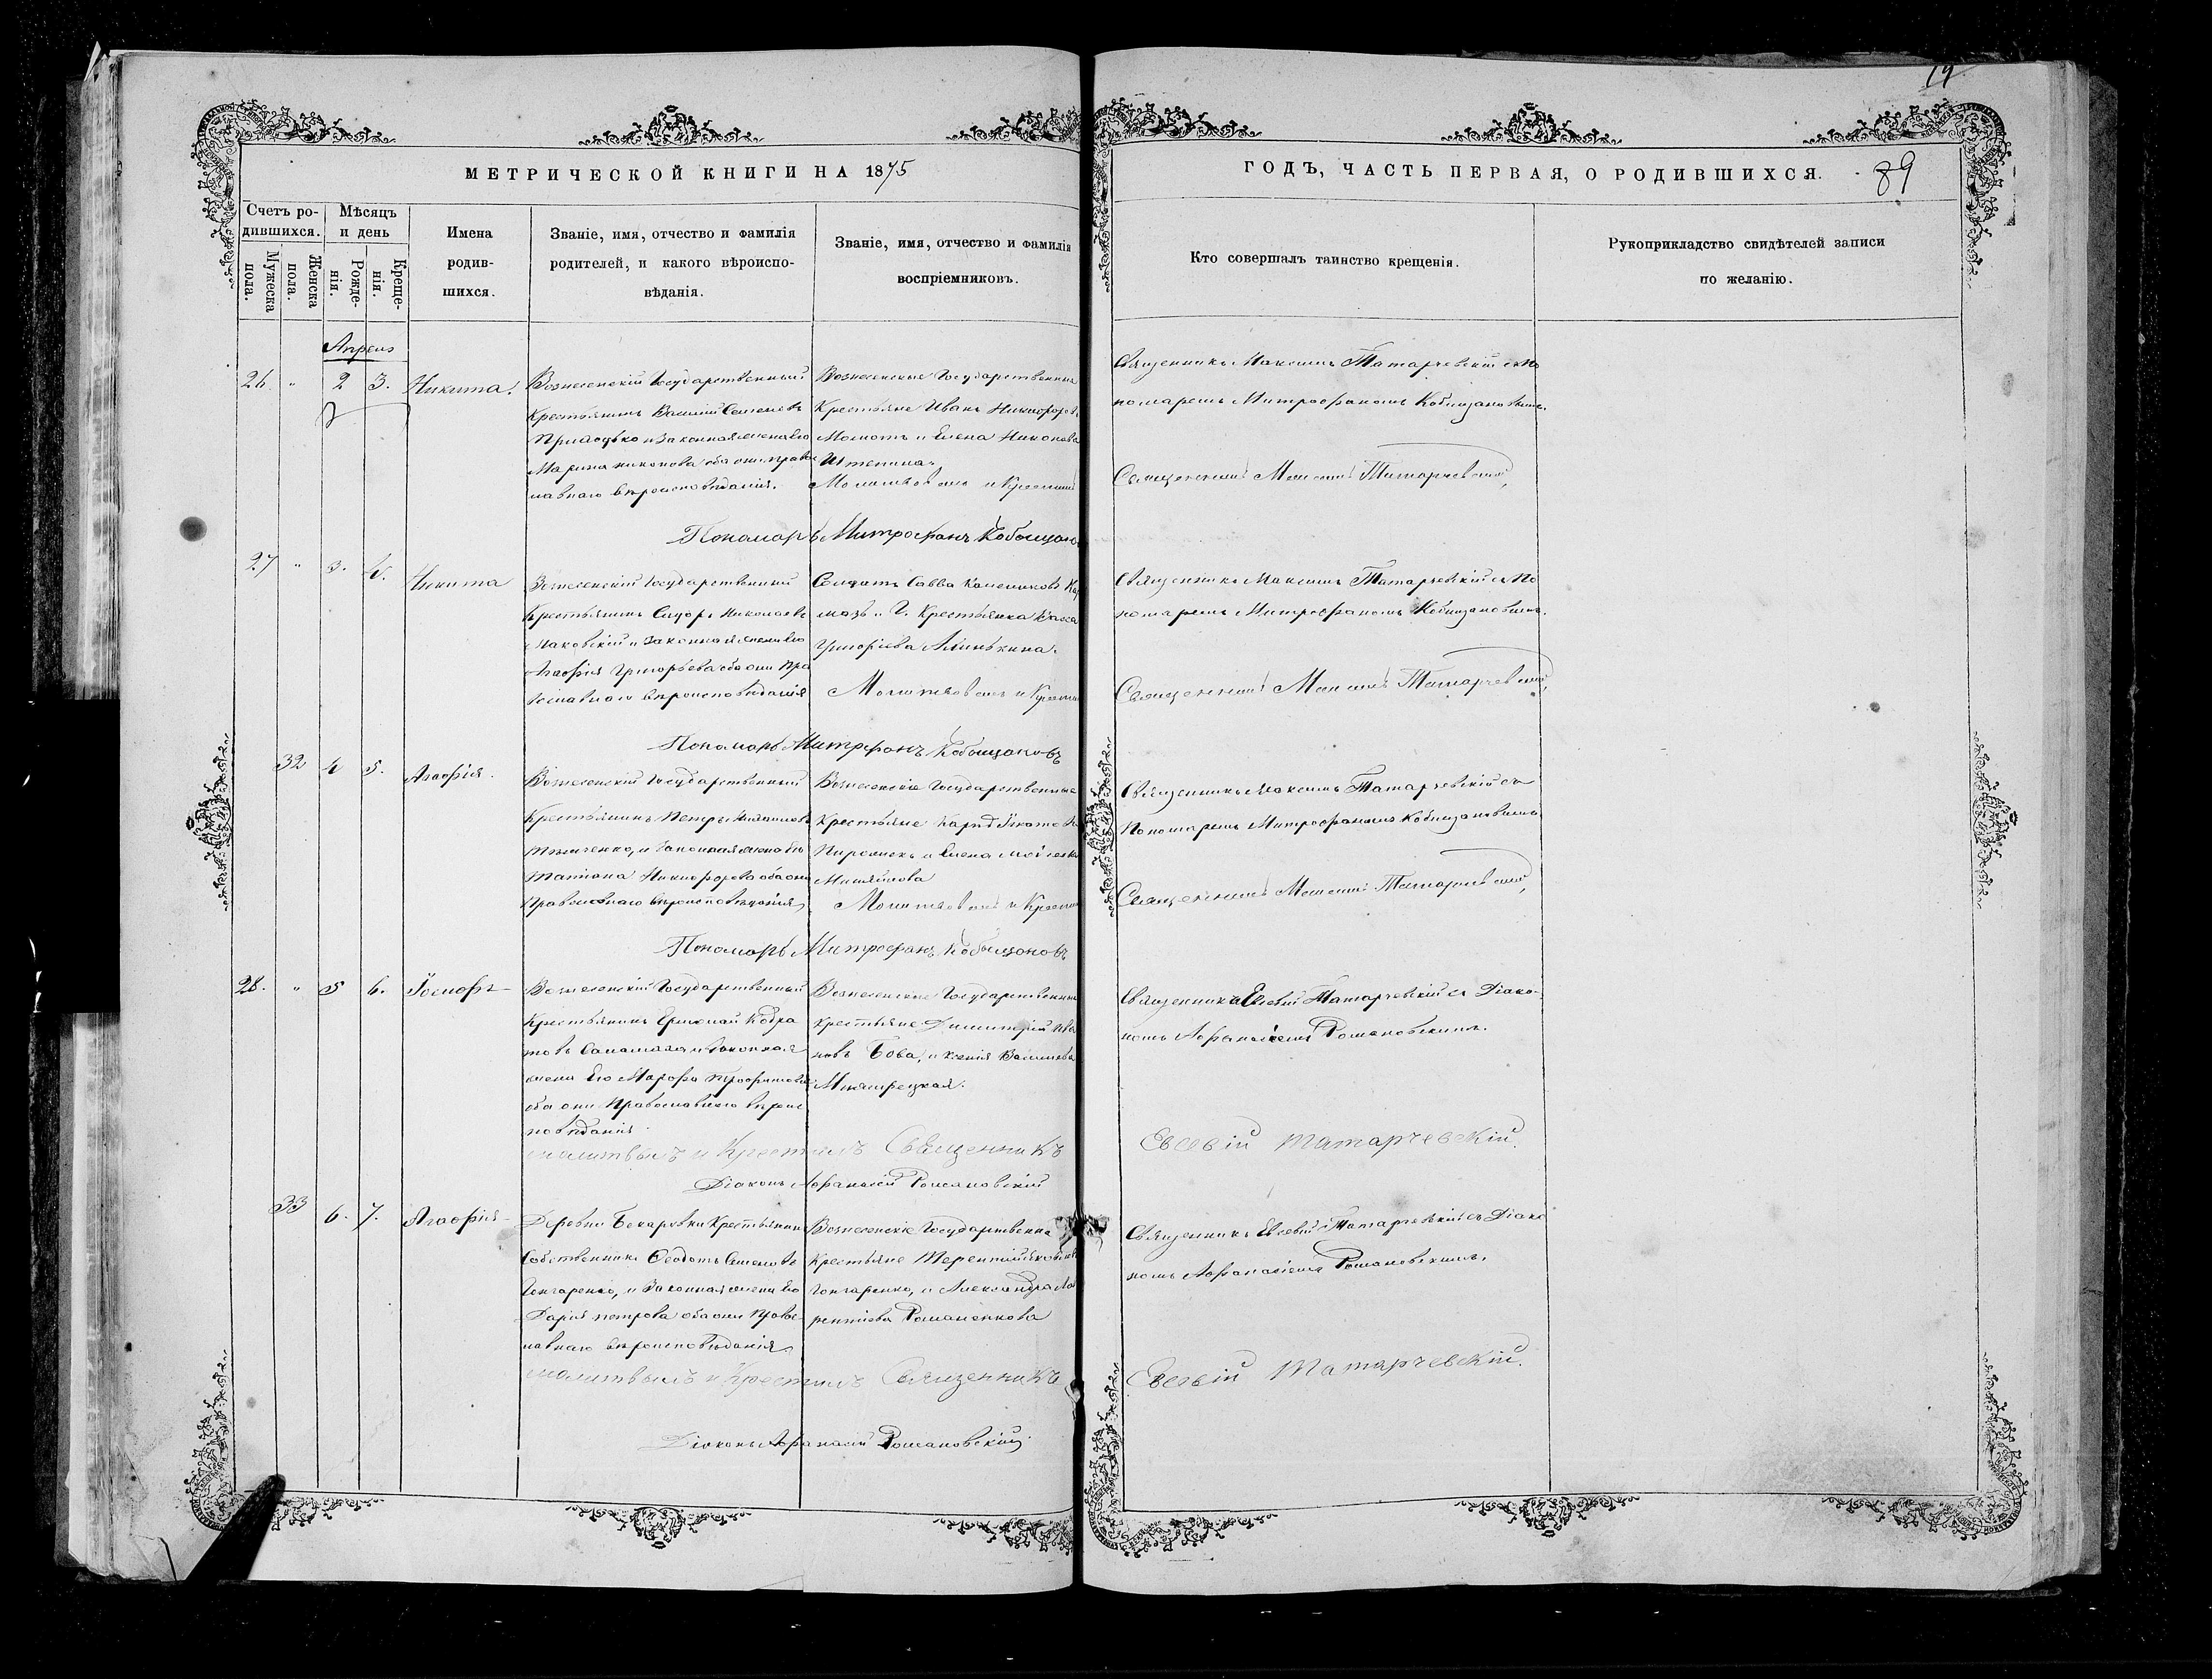 19
МЕТРИЧЕСКОЙ КНИГИ НА 1875
ГОДЪ, ЧАСТЬ ПЕРВАЯ, О РОДИВШИХСЯ.
89
Счетъ ро-
дившихся.
Мужеска
пола.
Женска
пола.
Мѣсяцъ
и день
Рожде-
нія.
Креще-
нія.
Имена
родив-
шихся.
Званіе, имя, отчество и фамилія
родителей, и какого вѣроиспо-
вѣданія.
Званіе, имя, отчество и фамилія
воспріемниковъ.
Кто совершалъ таинство крещенія.
Рукоприкладство свидѣтелей записи
по желанію.
Апрель
26. " 2 3. Никита.
Вознесенскій Государственный
Крестьянинъ Василій Семеновъ
и законная жена его
Марина Никонова оба они правос
лавнаго вѣроисповѣданія.
Вознесенские Государственные
Крестьяне Иванъ Никифоровъ
и Елена Никонова
Молитвовалъ и Крестилъ
Священникъ Максимъ Татарчевскій съ По
номаремъ Митрофаномъ Кобыщановымъ.
Священникъ Максимъ Татарчевскій,
Пономарь Митрофанъ Кобыщановъ
27 " 3. 4. Никита
Вознесенскій Государственный
Крестьянинъ Сидоръ Николаевъ
Маковскій и законная жена его
Агафія Григорьева оба они пра
вославнаго вѣроисповѣданія
Солдатъ Савва
и Г. Крестьянка Васса
Григоріева
Молитвовалъ и Крестилъ
Священникъ Максимъ Татарчевскій съ По
номаремъ Митрофаномъ Кобыщановымъ.
Священникъ Максимъ Татарчевскій,
Пономарь Митрофанъ Кобыщановъ
32 4 5. Агафія.
Вознесенскій Государственный
Крестьянинъ Петръ
и законная жена его
Татіана Никифорова оба они
Православнаго вѣроисповѣданія
Вознесенскіе Государственные
Крестьяне
и Елена
Молитвовалъ и Крестилъ
Священникъ Максимъ Татарчевскій съ
Пономаремъ Митрофаномъ Кобыщановымъ
Священникъ Максимъ Татарчевскій,
Пономарь Митрофанъ Кобыщановъ
28. " 5 6. Іосифъ
Вознесенскій Государственный
Крестьянинъ Николай Кодра
товъ и законная
жена Его Марфа
оба они Православнаго вѣроис
повѣданія.
Вознесенские Государственные
крестьяне Димитрій Ива
новъ Бова, и Ксенія Васильева
Священникъ Евсевій Татарчевскій съ Діако-
номъ Афанасіемъ Романовскимъ.
молитвылъ и Крестилъ Священникъ
Евсевій Татарчевскій.
Діаконъ Афанасій Романовскій
33 6. 7. Агафія
Деревни Крестьянинъ
Собственникъ Феодотъ Семеновъ
Гончаренко, и Законная жена Его
Дарія Петрова оба они Правос-
лавнаго вѣроисповѣданія.
Вознесенскіе Государственны
Крестьяне Терентій
Гончаренко, и Александра Лав
рентіева Романенкова
Священникъ Евсевій Татарчевскій съ Діако
номъ Афанасіемъ Романовскимъ.
молитвылъ и Крестилъ Священникъ
Евсевій Татарчевскій.
Діаконъ Афанасій Романовскій.